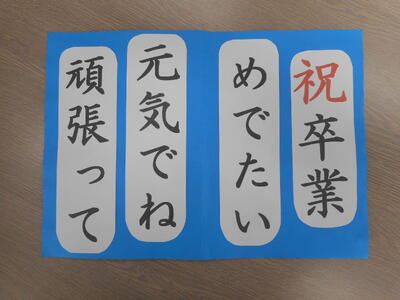 祝卒業
めでたい
元気でね
頑張って